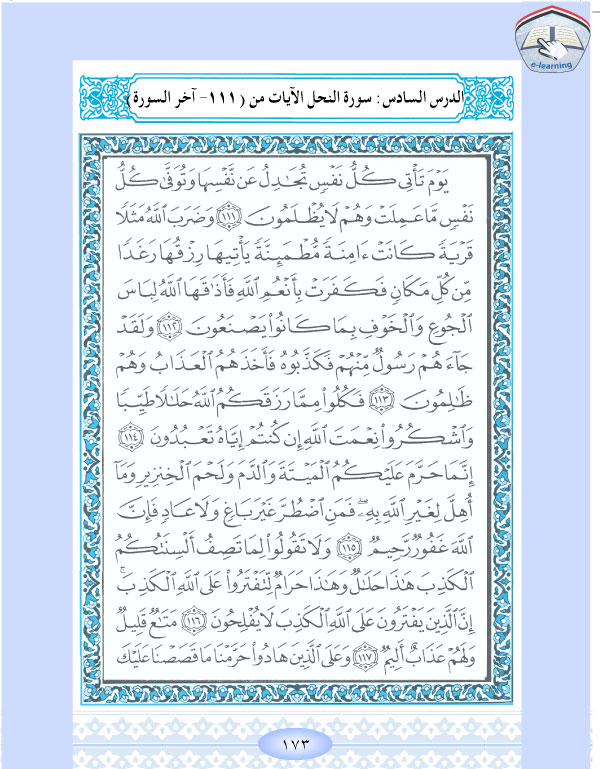 e-learning
الدرس السادس : سورة النحل الآيات من ( ١١١- آخر السورة )
يَوْمَ تَأْتِى كُلُّ نَفْسٍ تُجَٰدِلُ عَن نَّفْسِهَا وَتُوَفَّىٰ كُلُّ
نَفْسٍ مَّا عَمِلَتْ وَهُمْ لَا يُظْلَمُونَ ١١١ وَضَرَبَ ٱللَّهُ مَثَلًا
قَرْيَةً كَانَتْ ءَامِنَةً مُّطْمَئِنَّةً يَأْتِيهَا رِزْقُهَا رَغَدًا
مِّن كُلِّ مَكَانٍ فَكَفَرَتْ بِأَنْعُمِ ٱللَّهِ فَأَذَٰقَهَا ٱللَّهُ لِبَاسَ
ٱلْجُوعِ وَٱلْخَوْفِ بِمَا كَانُوا۟ يَصْنَعُونَ ١١٢ وَلَقَدْ
جَآءَهُمْ رَسُولٌ مِّنْهُمْ فَكَذَّبُوهُ فَأَخَذَهُمُ ٱلْعَذَابُ وَهُمْ
ظَٰلِمُونَ ١١٣ فَكُلُوا۟ مِمَّا رَزَقَكُمُ ٱللَّهُ حَلَٰلًا طَيِّبًا
وَٱشْكُرُوا۟ نِعْمَتَ ٱللَّهِ إِن كُنتُمْ إِيَّاهُ تَعْبُدُونَ ١١٤
إِنَّمَا حَرَّمَ عَلَيْكُمُ ٱلْمَيْتَةَ وَٱلدَّمَ وَلَحْمَ ٱلْخِنزِيرِ وَمَآ
أُهِلَّ لِغَيْرِ ٱللَّهِ بِهِۦ ۖ فَمَنِ ٱضْطُرَّ غَيْرَ بَاغٍ وَلَا عَادٍ فَإِنَّ
ٱللَّهَ غَفُورٌ رَّحِيمٌ ١١٥ وَلَا تَقُولُوا۟ لِمَا تَصِفُ أَلْسِنَتُكُمُ
ٱلْكَذِبَ هَٰذَا حَلَٰلٌ وَهَٰذَا حَرَامٌ لِّتَفْتَرُوا۟ عَلَى ٱللَّهِ ٱلْكَذِبَ ۚ
إِنَّ ٱلَّذِينَ يَفْتَرُونَ عَلَى ٱللَّهِ ٱلْكَذِبَ لَا يُفْلِحُونَ ١١٦ مَتَٰعٌ قَلِيلٌ
وَلَهُمْ عَذَابٌ أَلِيمٌ ١١٧ وَعَلَى ٱلَّذِينَ هَادُوا۟ حَرَّمْنَا مَا قَصَصْنَا عَلَيْكَ
١٧٣